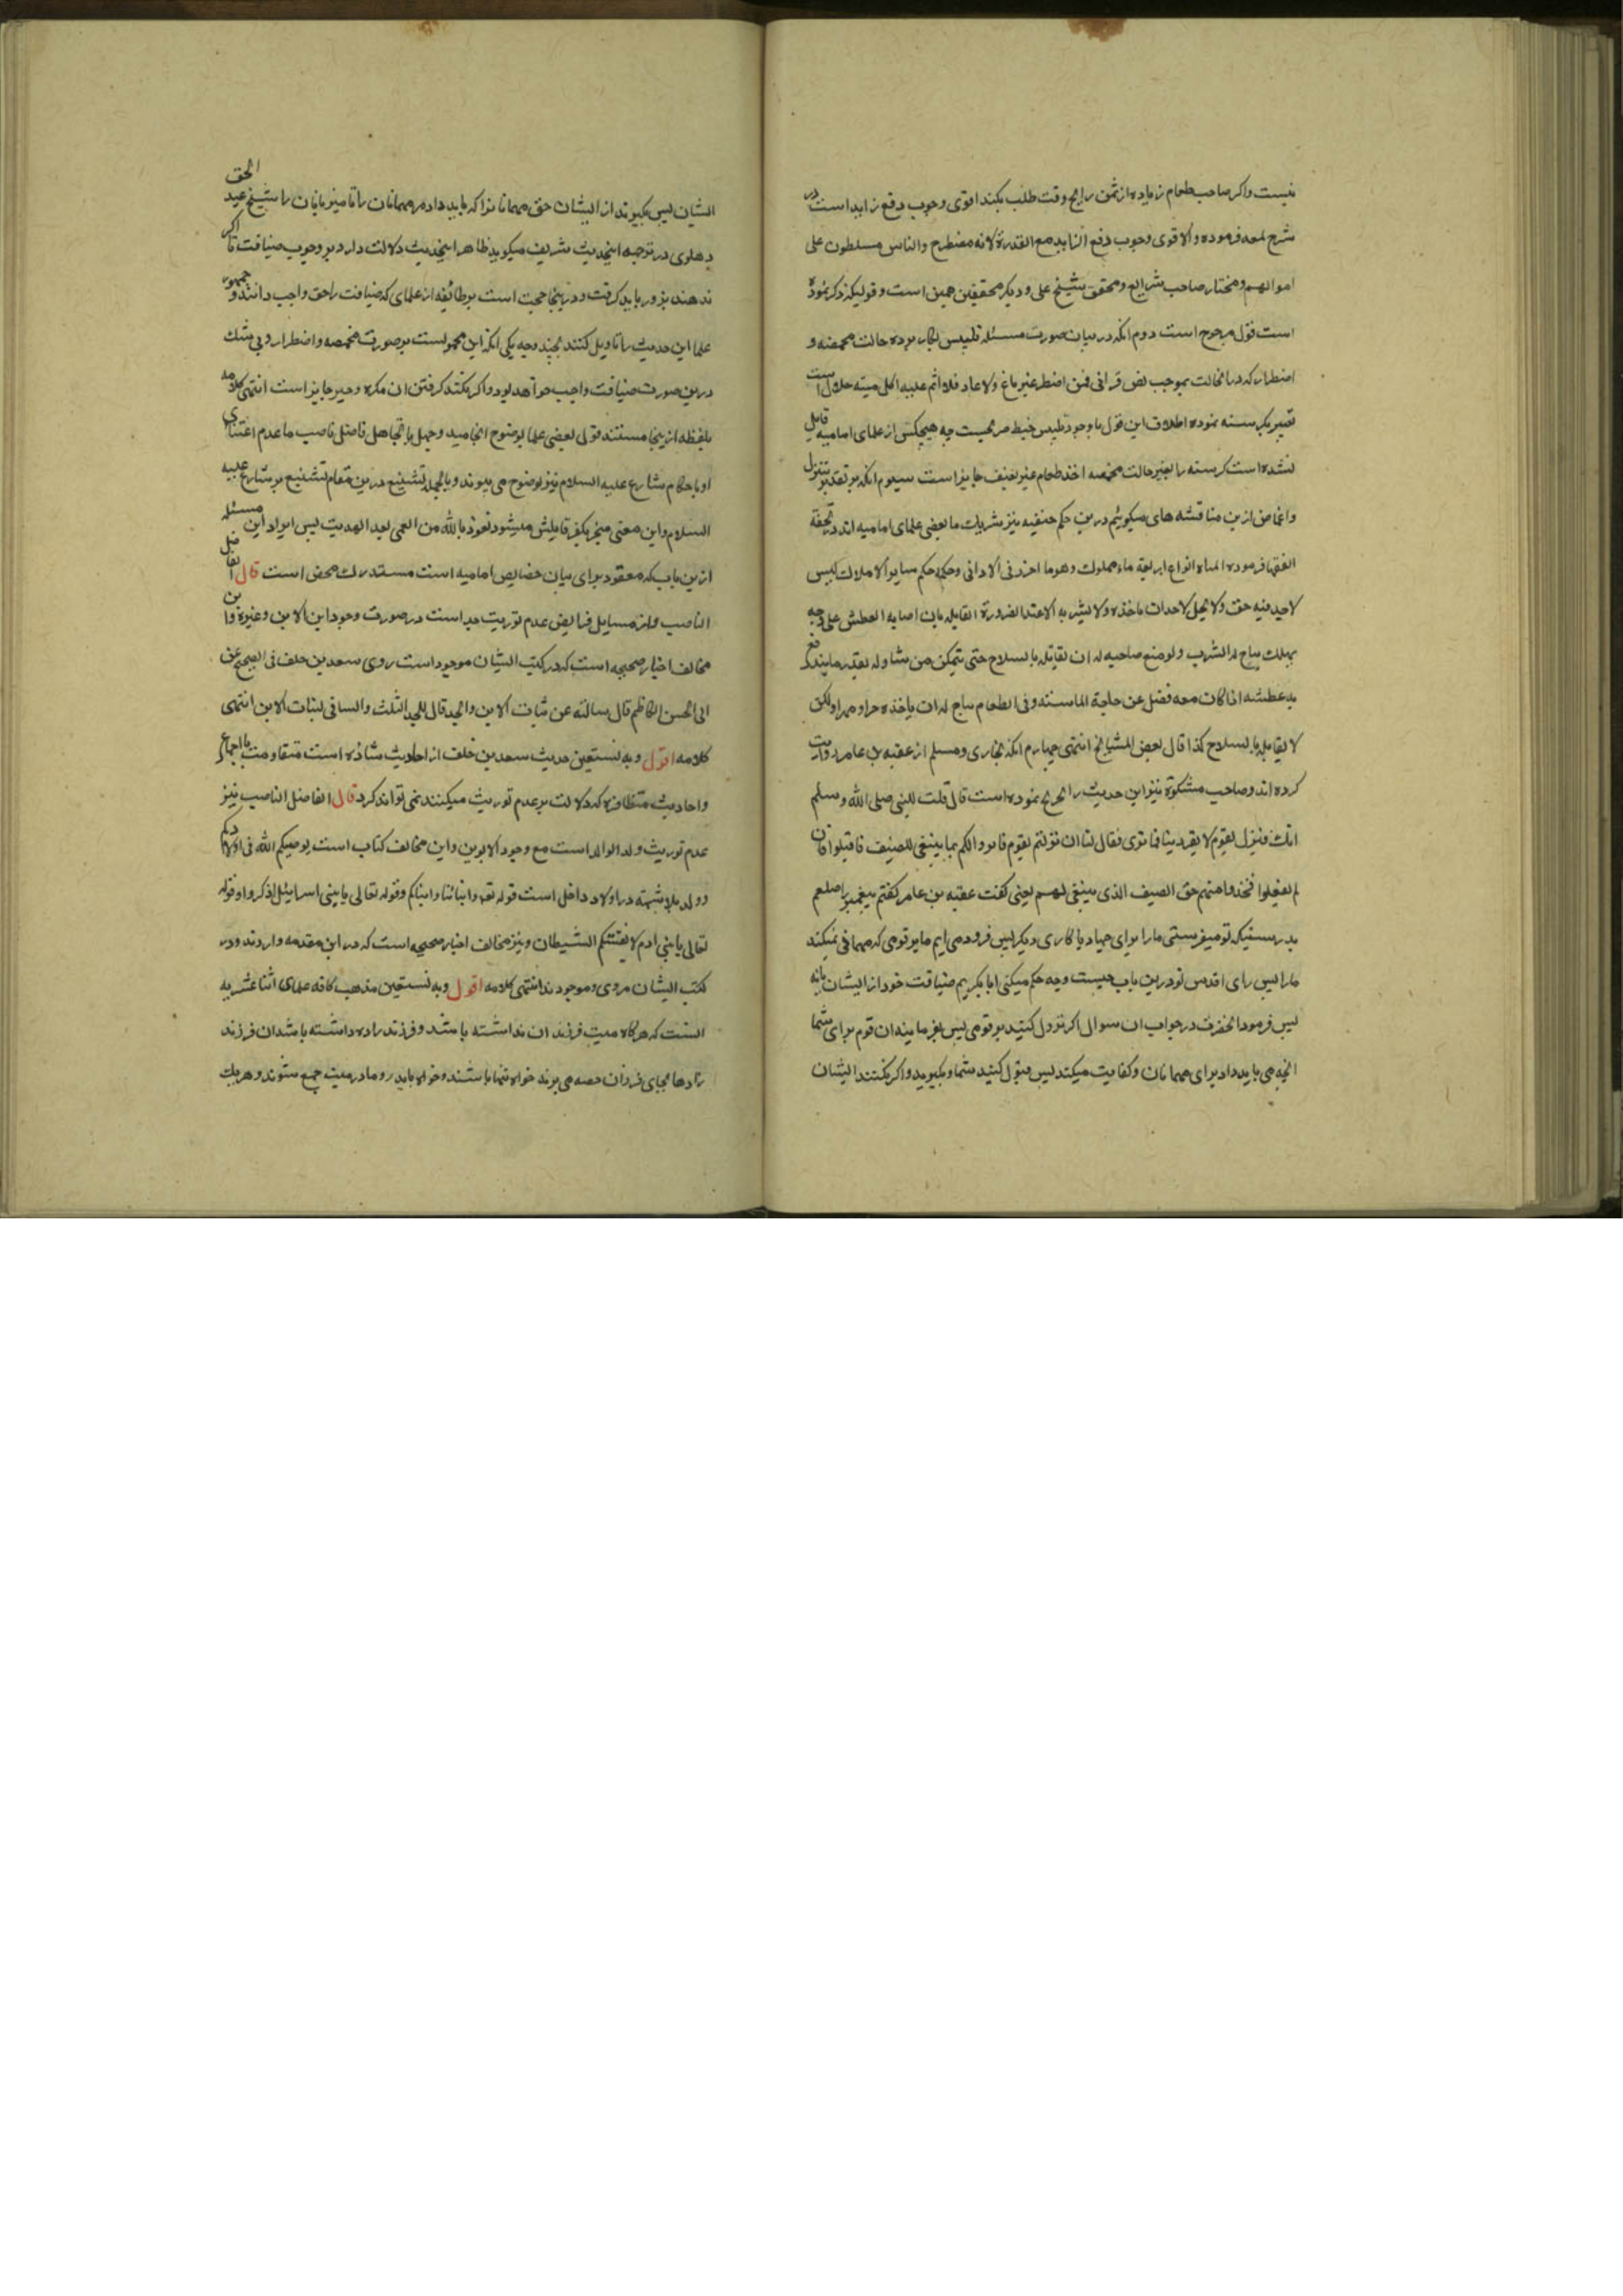 نیست واکر صاحب طعام زیاده از ثمن رایج وقت طلب بکند اقوی وجوب دفع زاید است در
شرح لمعه فرموده والاقوی وجوب دفع الزاید مع القدرة لانه مضطرح والناس مسلطون علی
اموالهم ومختار صاحب شرایع ومحقق شیخ علی ودیکر محققین همین است وقولیکه ذکر نموده
است قول مرجوح است دوم انکه در بیان صورت مسئله تلبیس بکار برده حالت مخمصه و
اضطرار که در انحالت بموجب نص قرانی فمن اضطر غیر باغ ولا عاد فلا اثم علیه اکل میته حلال است
تعبیر بکرسنه نموده اطلاق این قول با وجود تلبیس خبط صریحیست چه هیچکس از علمای امامیه قایل
نشده است کرسنه را بغیر حالت مخمصه اخذ طعام غیر بعنف جایز است سیوم انکه بر تقدیر تنزل
واغماض ازین مناقشه های میکوئیم درین حکم حنفیه نیز شریک ما بعضی علمای امامیه اند در تحفة
الفقها فرموده المیاه انواع اربعة ماء مملوک وهو ما احرز فی الاوانی وحکمه حکم سایر الاملاک لیس
لاحد فیه حق ولا یحل لاحد ان یاخذه ولا یشربه الا عند الضرورة القابله بان اصابه العطش علی وجه
یهلک یباح له الشرب ولو منع صاحبه له ان یقاتله بالسلاح حتی یتمکن من تناوله بقدر ما یندفع
به عطشه اذا کان معه فضل عن حاجة الماسته وفی الطعام یباح له ان یاخذه جرا وقهرا ولکن
لا یقابله بالسلاح کذا قال بعض المشایخ انتهی چهارم انکه بخاری ومسلم از عقبه بن عامر روایت
کرده اند وصاحب مشکوة نیز این حدیث را تخریج نموده است قال قلت للنبی صلی الله وسلم
انک فننزل بقوم لا یقریننا فما تری فقال لنا ان نزلتم بقوم فامروا لکم بما ینبغی للضیف فاقبلوا فان
لم یفعلوا فخذوا منهم حق الضیف الذی ینبغی لهم یعنی کفت عقبه بن عامر کفتم پیغمبر را صلعم
بدرستیکه تو میفرستی ما را برای جهاد یا کاری دیکر پس فرود می ایم ما بر قومی که مهمانی نمیکنند
ما را پس رای اقدس تو درین باب چیست وچه حکم میکنی ایا بکیریم ضیافت خود از ایشان یا نه
پس فرمود انحضرت در جواب ان سوال اکر نزول کنید بر قومی پس بفرمایند ان قوم برای شما
انچه می باید داد برای مهمانان وکفایت میکند پس قبول کنید شما وبکیرید واکر نکنند ایشان
ایشان پس بکیرند از ایشان حق مهمانانرا که باید داد مر مهمانان را تا میزبانان را شیخ عبد الحق
دهلوی در ترجمه اینحدیث شریف میکوید ظاهر اینحدیث دلالت دارد بر وجوب ضیافت تا اکر
ندهند بزور باید کرفت ودر ینجا حجت است بر طائفه از علمای که ضیافت را حق واجب دانند وجمهور
علما این حدیث را تاویل کنند بچند وجه یکی انکه این محمولست بر صورت مخمصه واضطرار وبی شک
درین صورت ضیافت واجب خواهد بود واکر نکنند کرفتن ان مکره وجبر جایز است انتهی کلامه
بلفظه از ینجا مستند قول بعضی علما بوضوح انجامید وجهل یا تجاهل فاضل ناصب ما عدم اعتنای
او باحکام شارع علیه السلام نیز بوضوح می پیوند وبالجمله تشنیع درین مقام تشنیع بر شارع علیه
السلام واین معنی منجر بکفر قایلش میشود نعوذ بالله من العمی بعد الهدیت پس ایراد این مسئله
ازین باب که معقود برای بیان خصایص امامیه است مستدرک محض است قال الفاضل
الناصب واز مسایل فرایض عدم توریت جد است در صورت وجود ابن الابن وغیره واین
مخالف اخبار صحیحه است که در کتب ایشان موجود است روی سعد بن خلف فی الصحیح عن
ابی الحسن الکاظم قال سالته عن بنات الابن والجد قال للجد الثلث والباقی لبنات الابن انتهی
کلامه اقول وبه نستعین حدیث سعد بن خلف از احادیث شاذه است متقاومت با اجماع
واحادیث متظافره که دلالت بر عدم توریث میکنند نمی تواند کرد قال الفاضل الناصب نیز
عدم توریث ولد الولد است مع وجود الابوین واین مخالف کتاب است یوصیکم الله فی اولادکم
وولد بلا شبهه در اولاد داخل است قوله تعه وابنائنا وابناکم وقوله تعالی یا بنی اسرائیل اذکروا وقوله
تعالی یا بنی ادم لا یفتننکم الشیطان ونیز مخالف اخبار صحیحه است که در این مقدمه واردند ودر
کتب ایشان مروی وموجودند انتهی کلامه اقول وبه نستعین مذهب کافه علمای اثنا عشریه
انست که هرکاه میت فرزندان نداشته باشد وفرزند زاده داشته باشد ان فرزند
زادها بجای فرزندان حصه می برند خواه تنها باشند وخواه با پدر ومادر میت جمع شوند وهریک